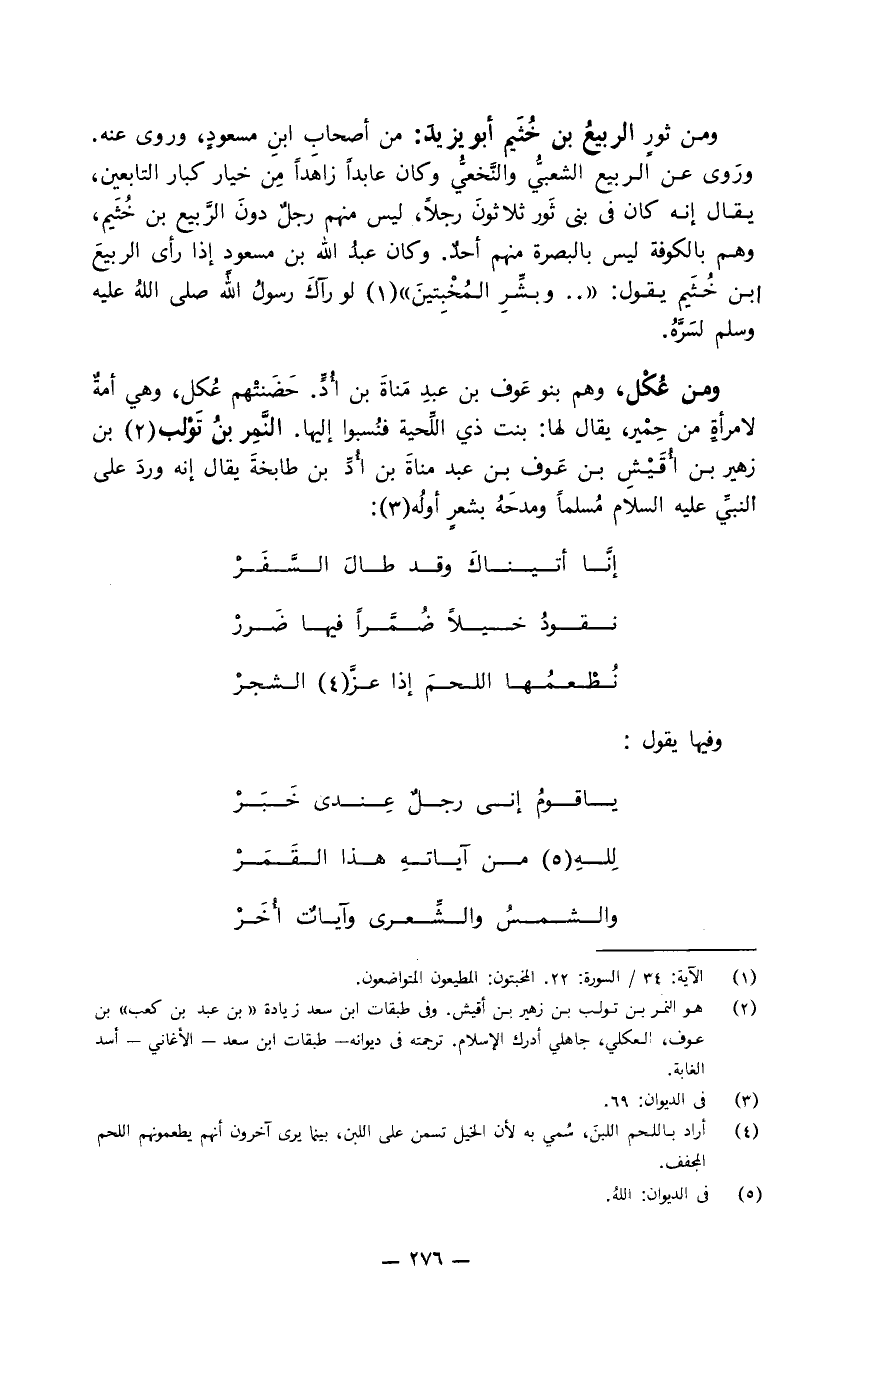 ومن ثورٍ الربيعُ بن خُثَيم أبو يزيدَ: من أصحابِ ابنِ مسعودٍ، وروى عنه.
ورَوى عن الربيع الشعبيُّ والنَّخعيُّ وكان عابداً زاهداً مِن خيار كبار التابعين،
يقال إنه كان فى بنى ثَور ثلاثونَ رجلاً، ليس منهم رجلٌ دونَ الرَّبيع بن خُثَيم،
وهم بالكوفة ليس بالبصرة منهم أحدٌ. وكان عبدُ الله بن مسعودٍ إذا رأى الربيعَ
ابن خُثَيم يقول: «.. وبشِّرِ المُخْبِتينَ»(١) لو رآكَ رسولُ اللّه صلى اللهُ عليه
وسلم لسَرَّهُ.
ومن عُكْل، وهم بنو عَوف بن عبدِ مَناةَ بن أُدٍّ. حَضَنتْهم عُكل، وهي أمةٌ
لامرأةٍ من حِمْير، يقال لها: بنت ذي اللِّحية فنُسبوا إليها. النَّمِر بنُ تَوْلب(٢) بن
زهير بن أُقَيْشِ بن عَوف بن عبد مناةَ بن أُدِّ بن طابخةَ يقال إنه وردَ على
النبيِّ عليه السلام مُسلماً ومدحَهُ بشعرٍ أولُه(٣):
إنَّا أتيناكَ وقد طالَ السَّفَرْ
نقودُ خيلاً ضُمَّراً فيها ضَررْ
نُطْعمُها اللحمَ إذا عزَّ(٤) الشجرْ
وفيها يقول :
ياقومُ إنى رجلٌ عِندى خَبَرْ
لِلهِ(٥) من آياتهِ هذا القَمَرْ
والشمسُ والشِّعرى وآياتٌ أُخَرْ
(١) الآية: ٣٤ / السورة: ٢٢. المخبتون: المطيعون المتواضعون.
(٢) هو النمر بن تولب بن زهير بن أقيش. وفى طبقات ابن سعد زيادة « بن عبد بن كعب» بن
عوف، العكلي، جاهلي أدرك الإسلام. ترجمته فى ديوانه— طبقات ابن سعد — الأغاني — أسد
الغابة.
(٣) فى الديوان: ٦٩.
(٤) أراد باللحم اللبنَ، سُمي به لأن الخيل تسمن على اللبن، بينما يرى آخرون أنهم يطعمونهم اللحم
المجفف.
(٥) فى الديوان: اللهُ.
— ٢٧٦ —